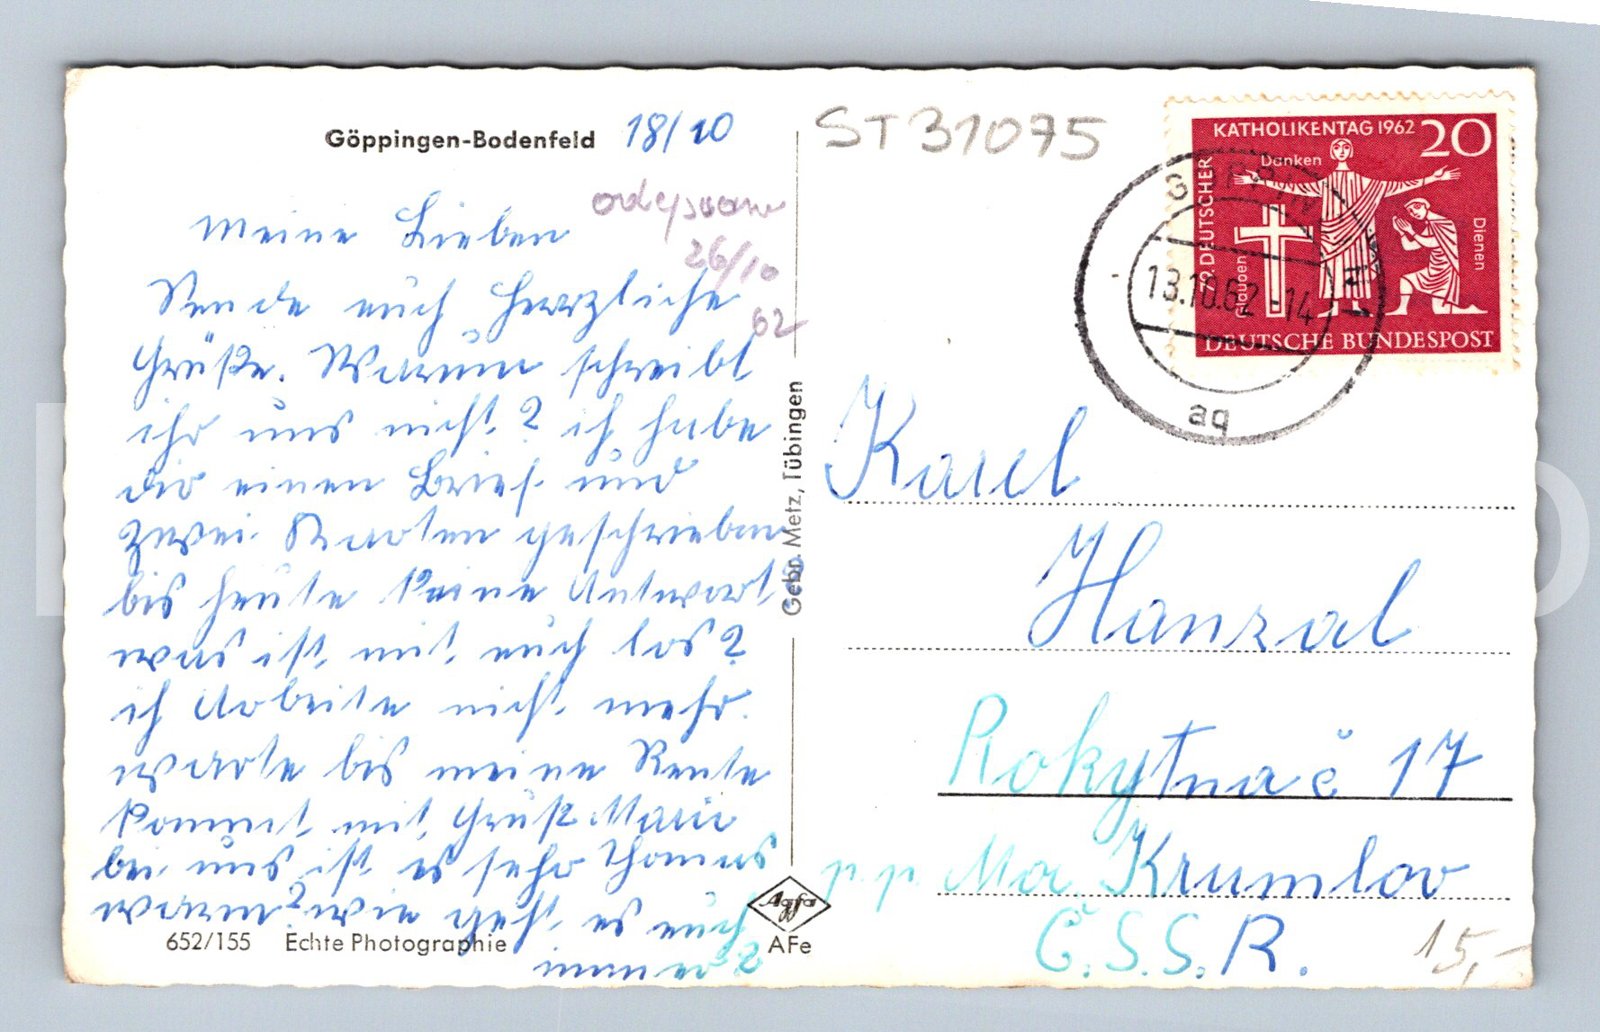 Göppingen-Bodenfeld 18/10
26/10
62
meine Lieben
Sende euch Herzliche
Grüße. Warum schreibt
ihr uns nicht? ich habe
dir einen Brief und
zwei Karten geschrieben
bis heute keine Antwort?
was ist mit euch los?
ich Arbeite nicht mehr.
warte bis meine Rente
kommt, mit Gruß Marie
bei uns ist es sehr Thomas
warm? wie geht es euch
immer?
652/155 Echte Photographie
Agfa
AFe
Gebr. Metz, Tübingen
ST31075
79. DEUTSCHER
KATHOLIKENTAG 1962 20
Danken
Glauben
Dienen
DEUTSCHE BUNDESPOST
GÖPPINGEN
13.10.62-14
aq
Karel
Hanzal
Rokytnač 17
p.p. Mor Krumlov
Č.S.S.R.
15,-